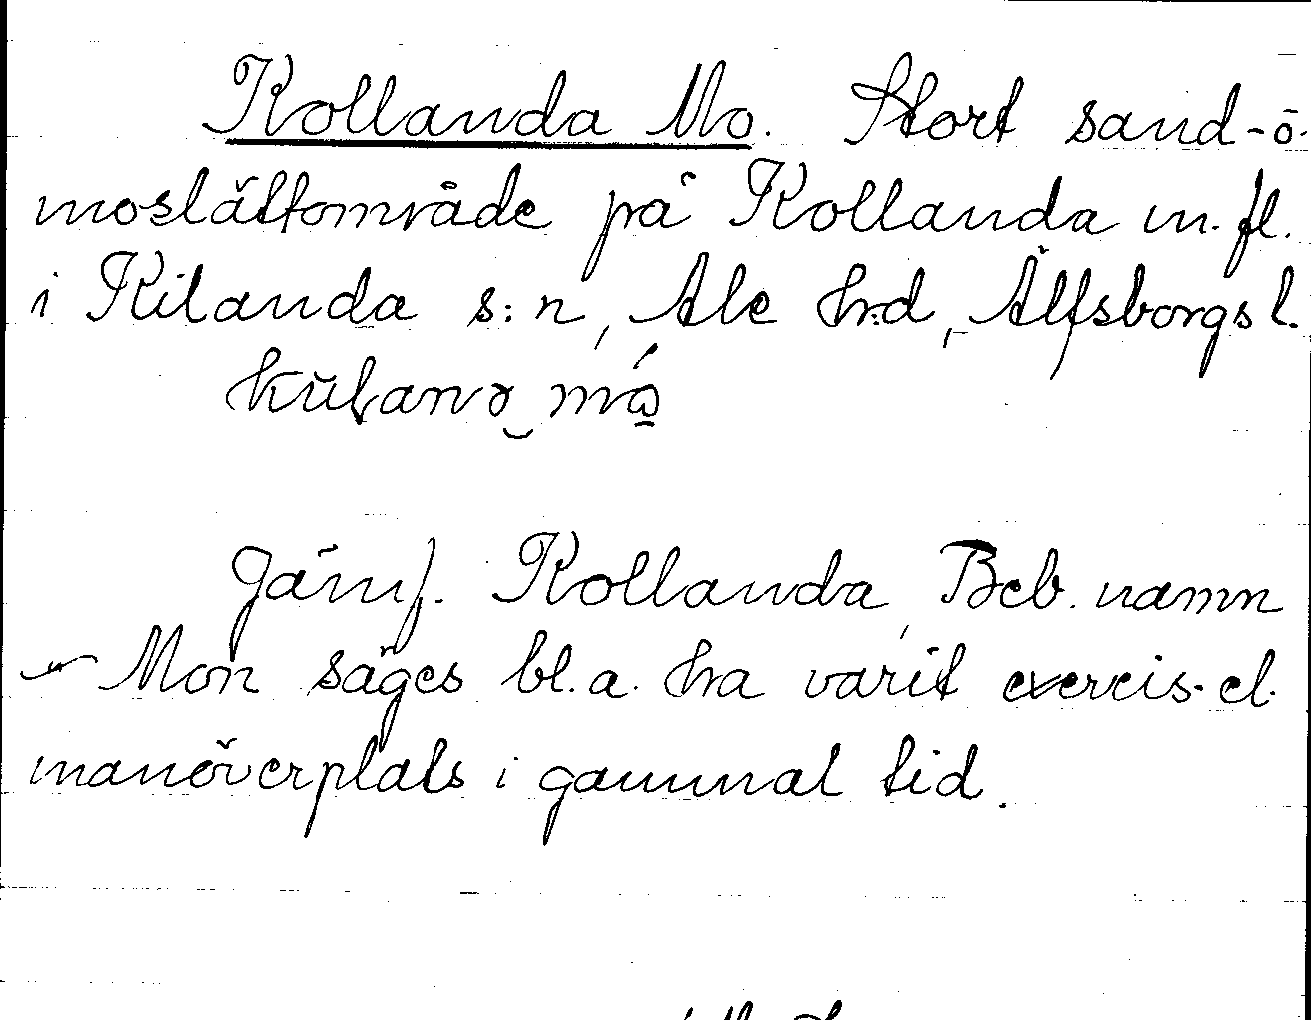 Kollanda Mo. Stort sand- o.
moslättområde på Kollanda m. fl.
i Kilanda s:n, Ale hrd, Älfsborgs l.
Jämf. Kollanda, Beb. namn
Mon säges bl. a. ha varit exercis- el.
manöverplats i gammal tid.